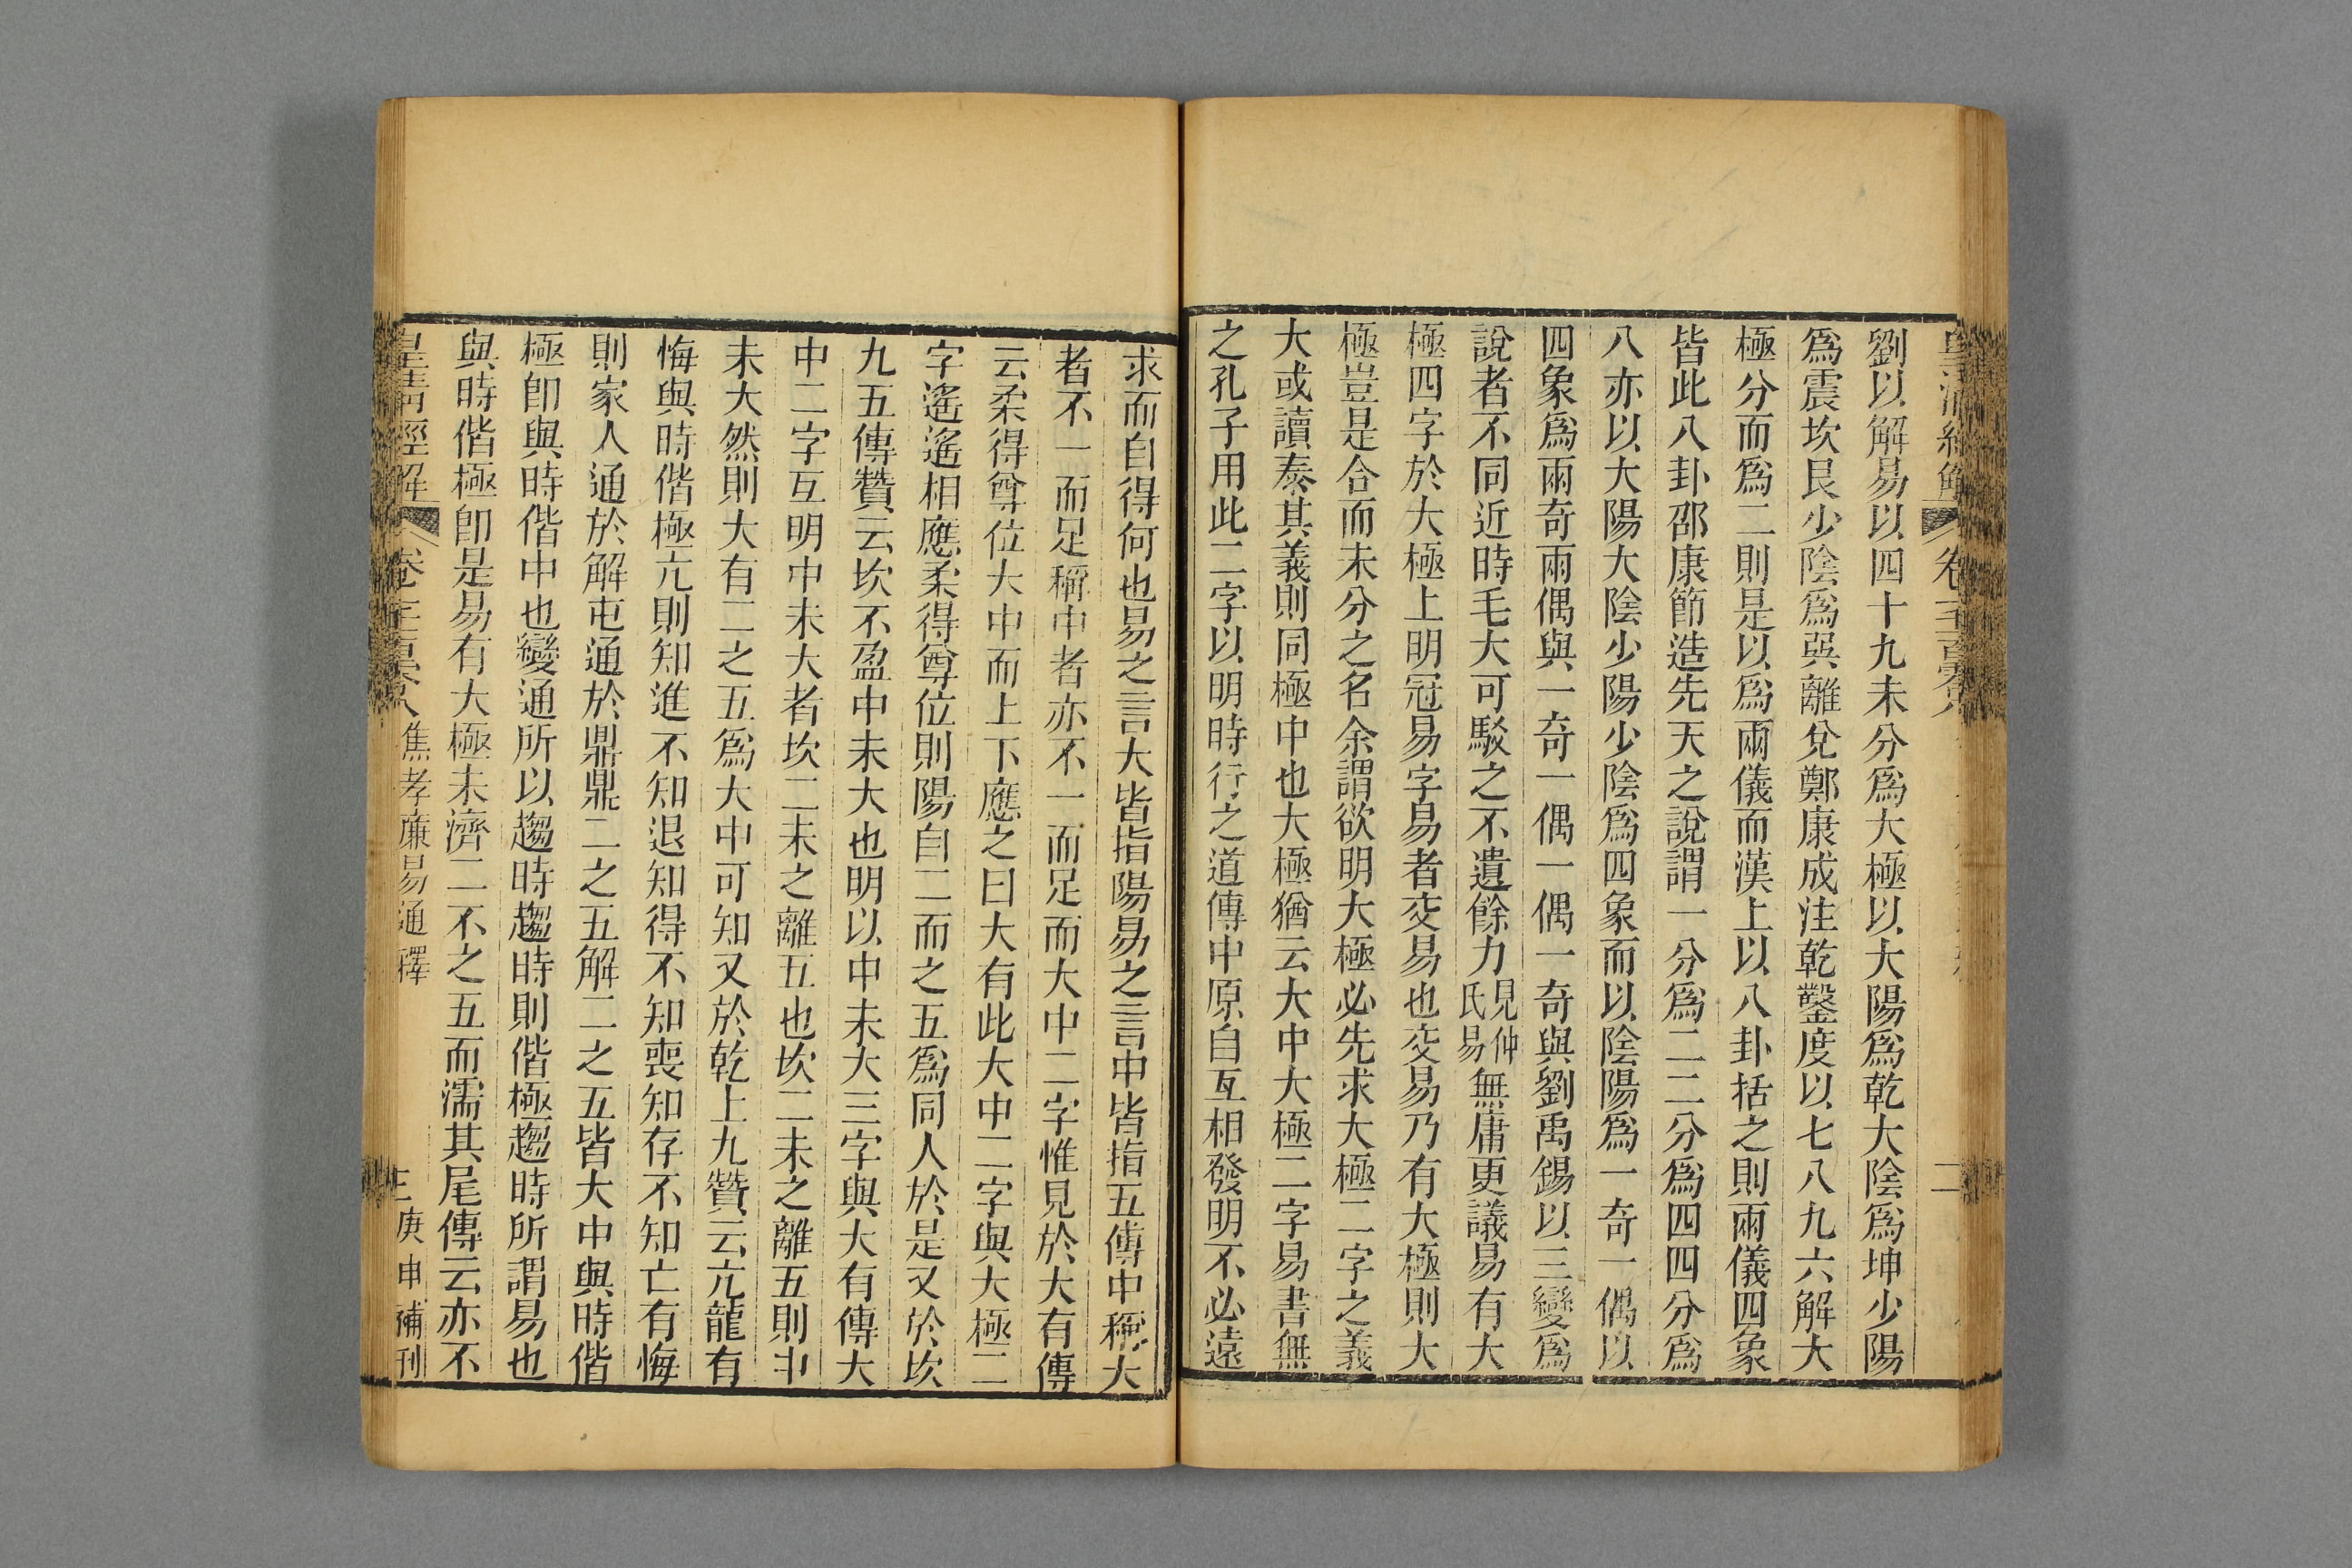 劉以解易以四十九未分爲大極以大陽爲乾大陰爲坤少陽
爲震坎艮少陰爲巽離兌鄭康成注乾鑿度以七八九六解大
極分而爲二則是以爲兩儀而漢上以八卦括之則兩儀四象
皆此八卦邵康節造先天之說謂一分爲二二分爲四四分爲
八亦以大陽大陰少陽少陰爲四象而以陰陽爲一奇一偶以
四象爲兩奇兩偶與一奇一偶一偶一奇與劉禹錫以三變爲
說者不同近時毛大可駁之不遺餘力見仲氏易無庸更議易有大
極四字於大極上明冠易字易者交易也交易乃有大極則大
極豈是合而未分之名余謂欲明大極必先求大極二字之義
大或讀泰其義則同極中也大極猶云大中大極二字易書無
之孔子用此二字以明時行之道傳中原自互相發明不必遠
求而自得何也易之言大皆指陽易之言中皆指五傳中稱大
者不一而足稱中者亦不一而足而大中二字惟見於大有傳
云柔得尊位大中而上下應之曰大有此大中二字與大極二
字遙遙相應柔得尊位則陽自二而之五爲同人於是又於坎
九五傳贊云坎不盈中未大也明以中未大三字與大有傳大
中二字互明中未大者坎二未之離五也坎二未之離五則中
未大然則大有二之五爲大中可知又於乾上九贊云亢龍有
悔與時偕極亢則知進不知退知得不知喪知存不知亡有悔
則家人通於解屯通於鼎鼎二之五解二之五皆大中與時偕
極卽與時偕中也變通所以趨時趨時則偕極趨時所謂易也
與時偕極卽是易有大極未濟二不之五而濡其尾傳云亦不
皇清經解
卷一千一百零八
焦孝廉易通釋
三
庚申補刊